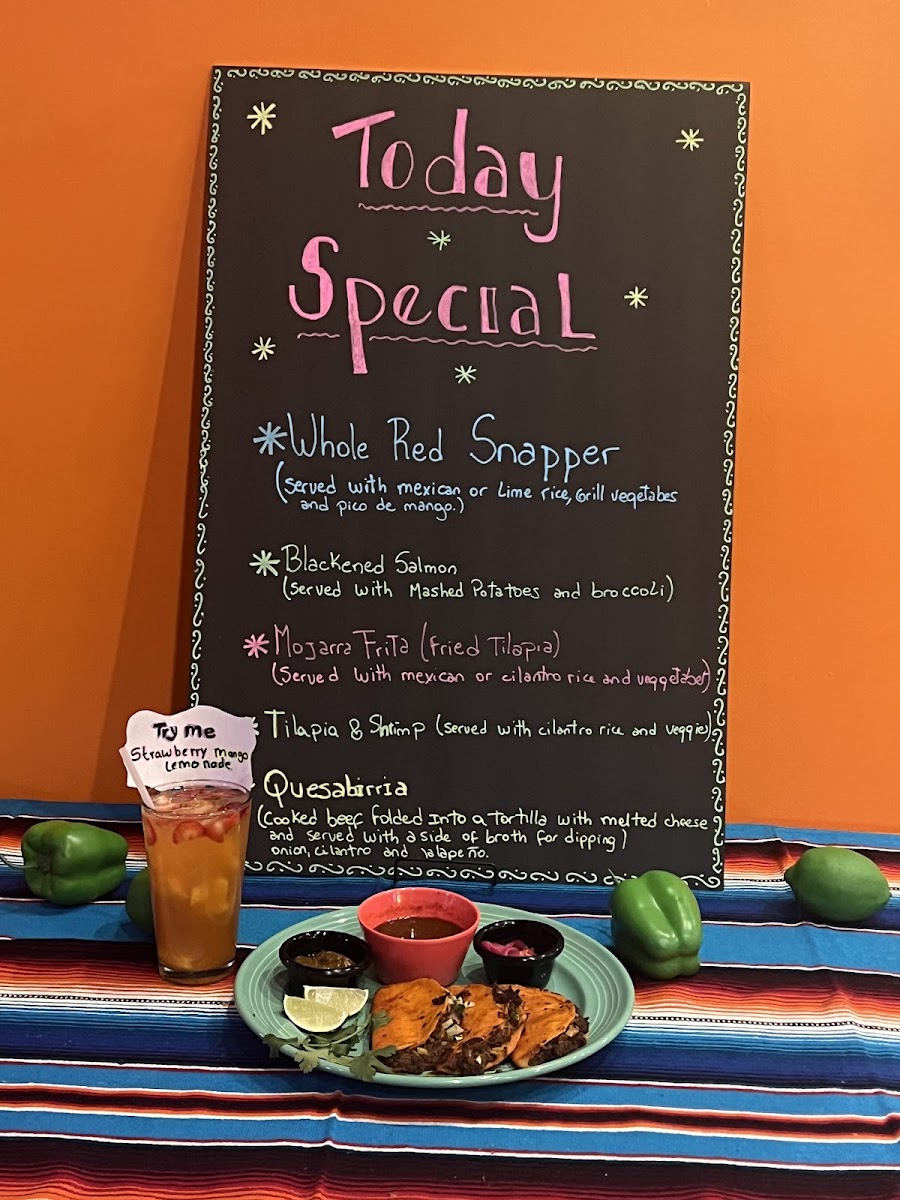 Today
Special
*Whole Red Snapper
(Served with mexican or Lime rice, Grill vegetabes
and pico de mango.)
*Blackened Salmon
(Served with Mashed Potatoes and broccoli)
*Mojarra Frita (Fried Tilapia)
(Served with mexican or cilantro rice and veggetabes)
*Tilapia & Shrimp (served with cilantro rice and veggies)
*Quesabirria
(Cooked beef folded Into a Tortilla with melted cheese
and served with a side of broth for dipping)
onion, cilantro and jalapeño.
Try me
Strawberry mango
Lemonade